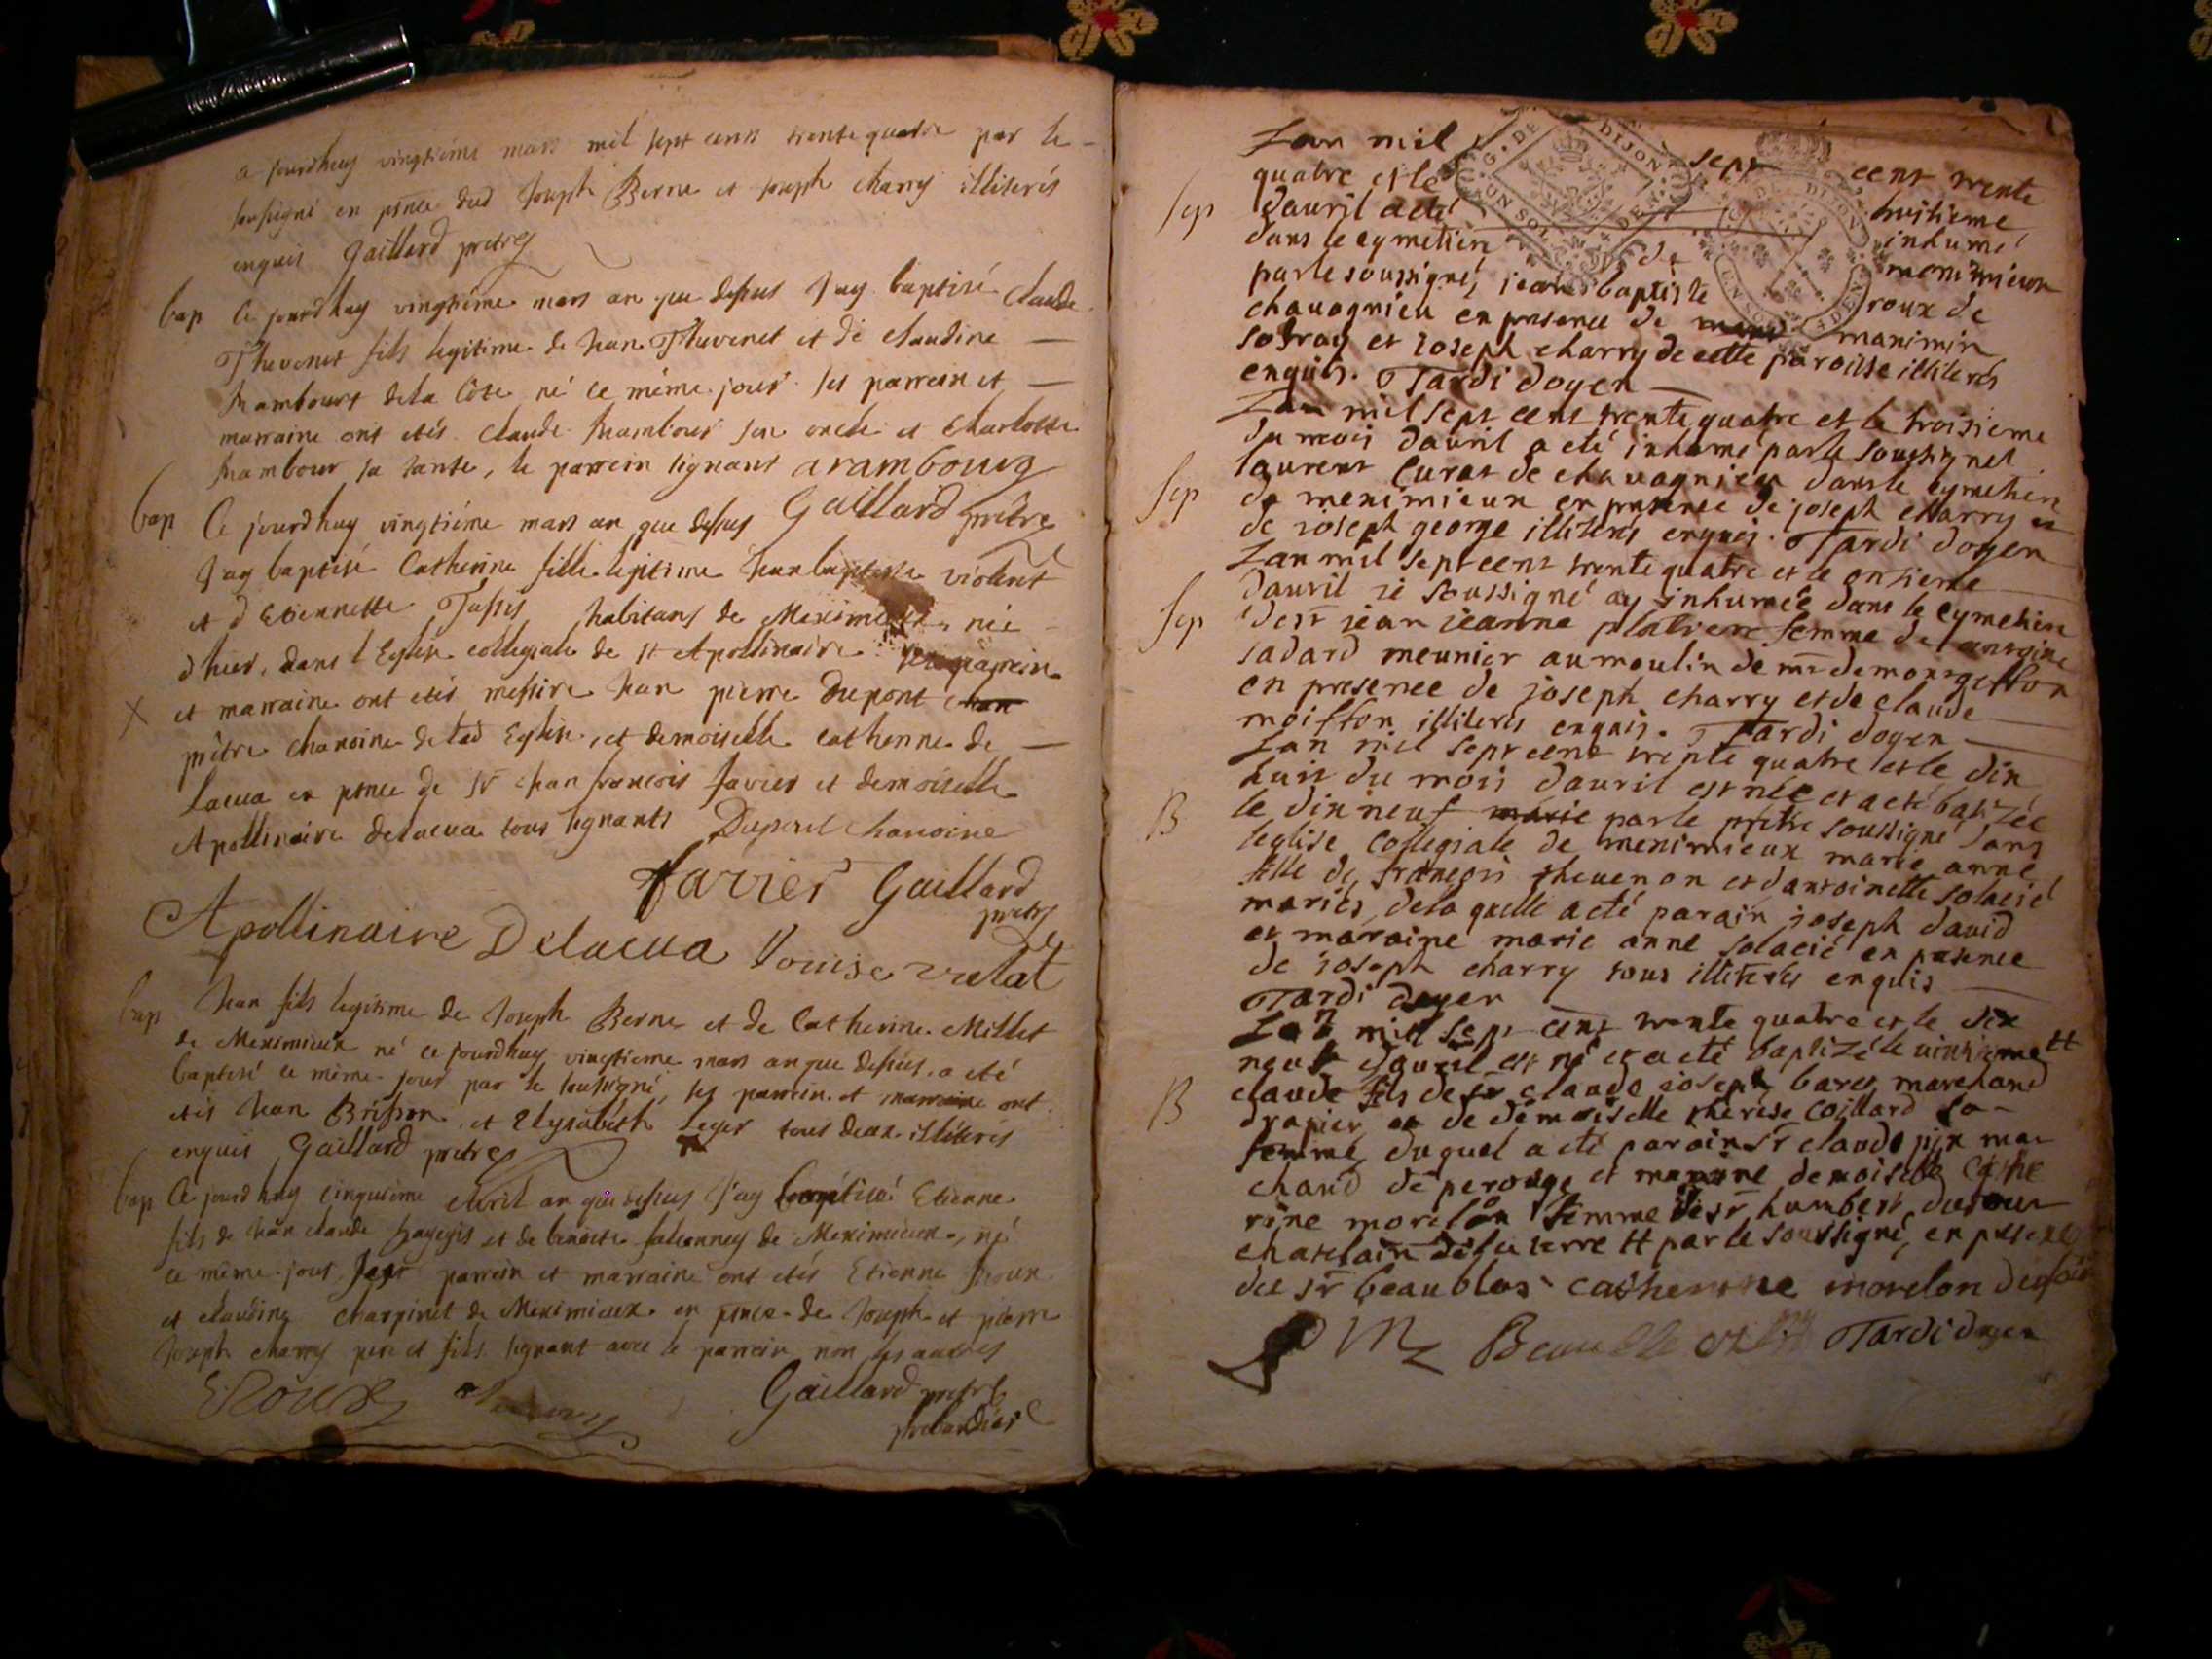 a jourdhuy vingtiéme mars mil sept cens trente quatre par le
soussigné en pnce dud Joseph Berne et joseph charry illiterés
enquis Gaillard pretre
bap Ce jourdhuy vingtiéme mars an que dessus J'ay baptisé Claude
Thevenet fils legitime de Jean Thevenet et de claudine
hambourt de la Côte né ce même jour ses parrein et
marraine ont etés Claude hambour son oncle et Charlotte
hambour sa tante, le parrein signant arambourg
Gaillard prêtre
bap Ce jourdhuy vingtiéme mars an que dessus
J'ay baptisé Catherine fille legitime Jean baptiste violent
et d'Etiennette habitans de Meximieux, née
d'hier, dans l'Eglise collegiale de st Apollinaire parrein
et marraine ont etés messire Jean pierre Dupont
prêtre chanoine de lad Eglise, et demoiselle catherine de
lacua en pnce de Sr Jean francois favier et demoiselle
Apollinaire delacua tous signants Dupont chanoine
favier Gaillard
pretre
Apollinaire Delacua Louise
bap Jean fils legitime de Joseph Berne et de Catherine Millet
de Meximieux né ce jourdhuy vingtieme mars an que dessus, a eté
baptisé ce même jour par le soussigné, ses parrein et marraine ont
etés Jean Brisson et Elysabeth Leger tous deux illiterés
enquis Gaillard pretre
bap Ce jourd'huy cinquiéme Avril an que dessus J'ay baptisé Etienne
fils de Jean claude et de benoite de Meximieux, né
ce même jour, parrein et marraine ont etés Etienne Roux
et claudine Charpinet de Meximieux en pnce de Joseph et pierre
Joseph charry pere et fils signant avec le parrein non les autres
ERoux Gaillard pretre
prebandier
Lan mil sept cent trente
quatre et le huitieme
sep davril a eté inhumé
dans le cymetiere de meximieux
par le soussigné, jean baptiste roux de
chavagnieu en presence de manimin
et joseph charry de cette paroisse illiterés
enquis. Tardi doyen
Lan mil sept cent trente quatre et le troisieme
du mois davril a eté inhumé par le soussigné
laurent Curat de chavagnieu dans le cymetiere
sep de meximieux en presence de joseph charry et
de joseph george illiterés enquis. Tardi doyen
Lan mil sept cent trente quatre et le onsieme
davril je soussigné ay inhumée dans le cymetiere
sep de st jean jeanne platiere femme de antoine
sadard meunier au moulin de mr de
en presence de joseph charry et de claude
moiffon illiterés enquis. Tardi doyen
Lan mil sept cent trente quatre et le dix
huit du mois davril est née et a eté batizée
B le dix neuf marie par le prêtre soussigné dans
leglise Collegiale de meximieux marie anne
fille de françois thevenon et dantoinette solacié
mariés, de la quelle a eté parain joseph david
et maraine marie anne solacié en pasence
de joseph charry tous illiterés enquis
Tardi doyen
Lan mil sept cent trente quatre et le dix
neuf davril est né et a eté baptizé le vintieme #
B claude fils de sr claude joseph baret marchand
drapier et de demoiselle therese Coillard sa
femme, duquel a eté parain sr claude pin mar
chand de perouge et maraine demoiselle Cathe
rine morelon femme de sr humbert dufour
chatelain # par le soussigné, en psence
du sr beaublas catherine morelon dufour
Tardi doyen